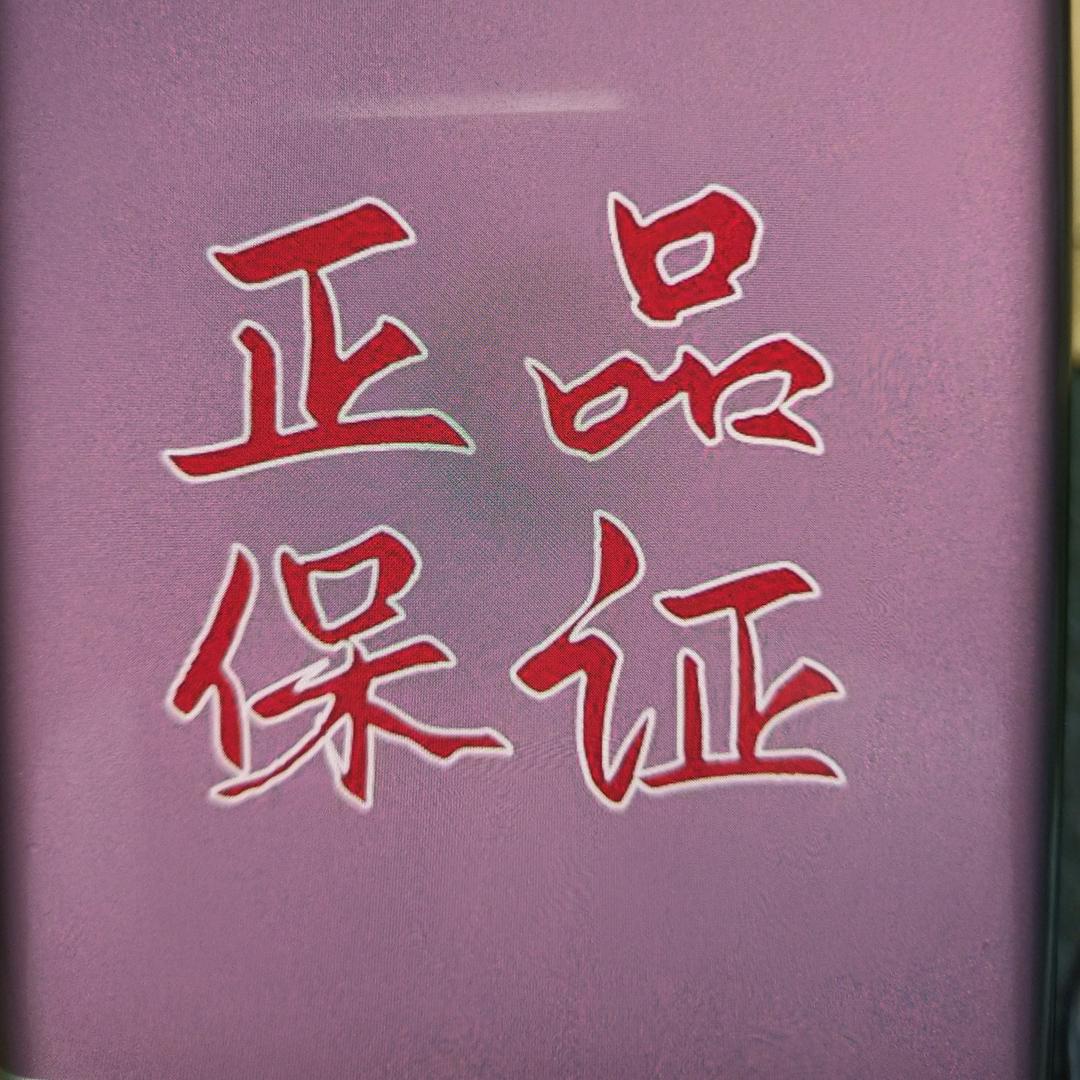 正品
保证